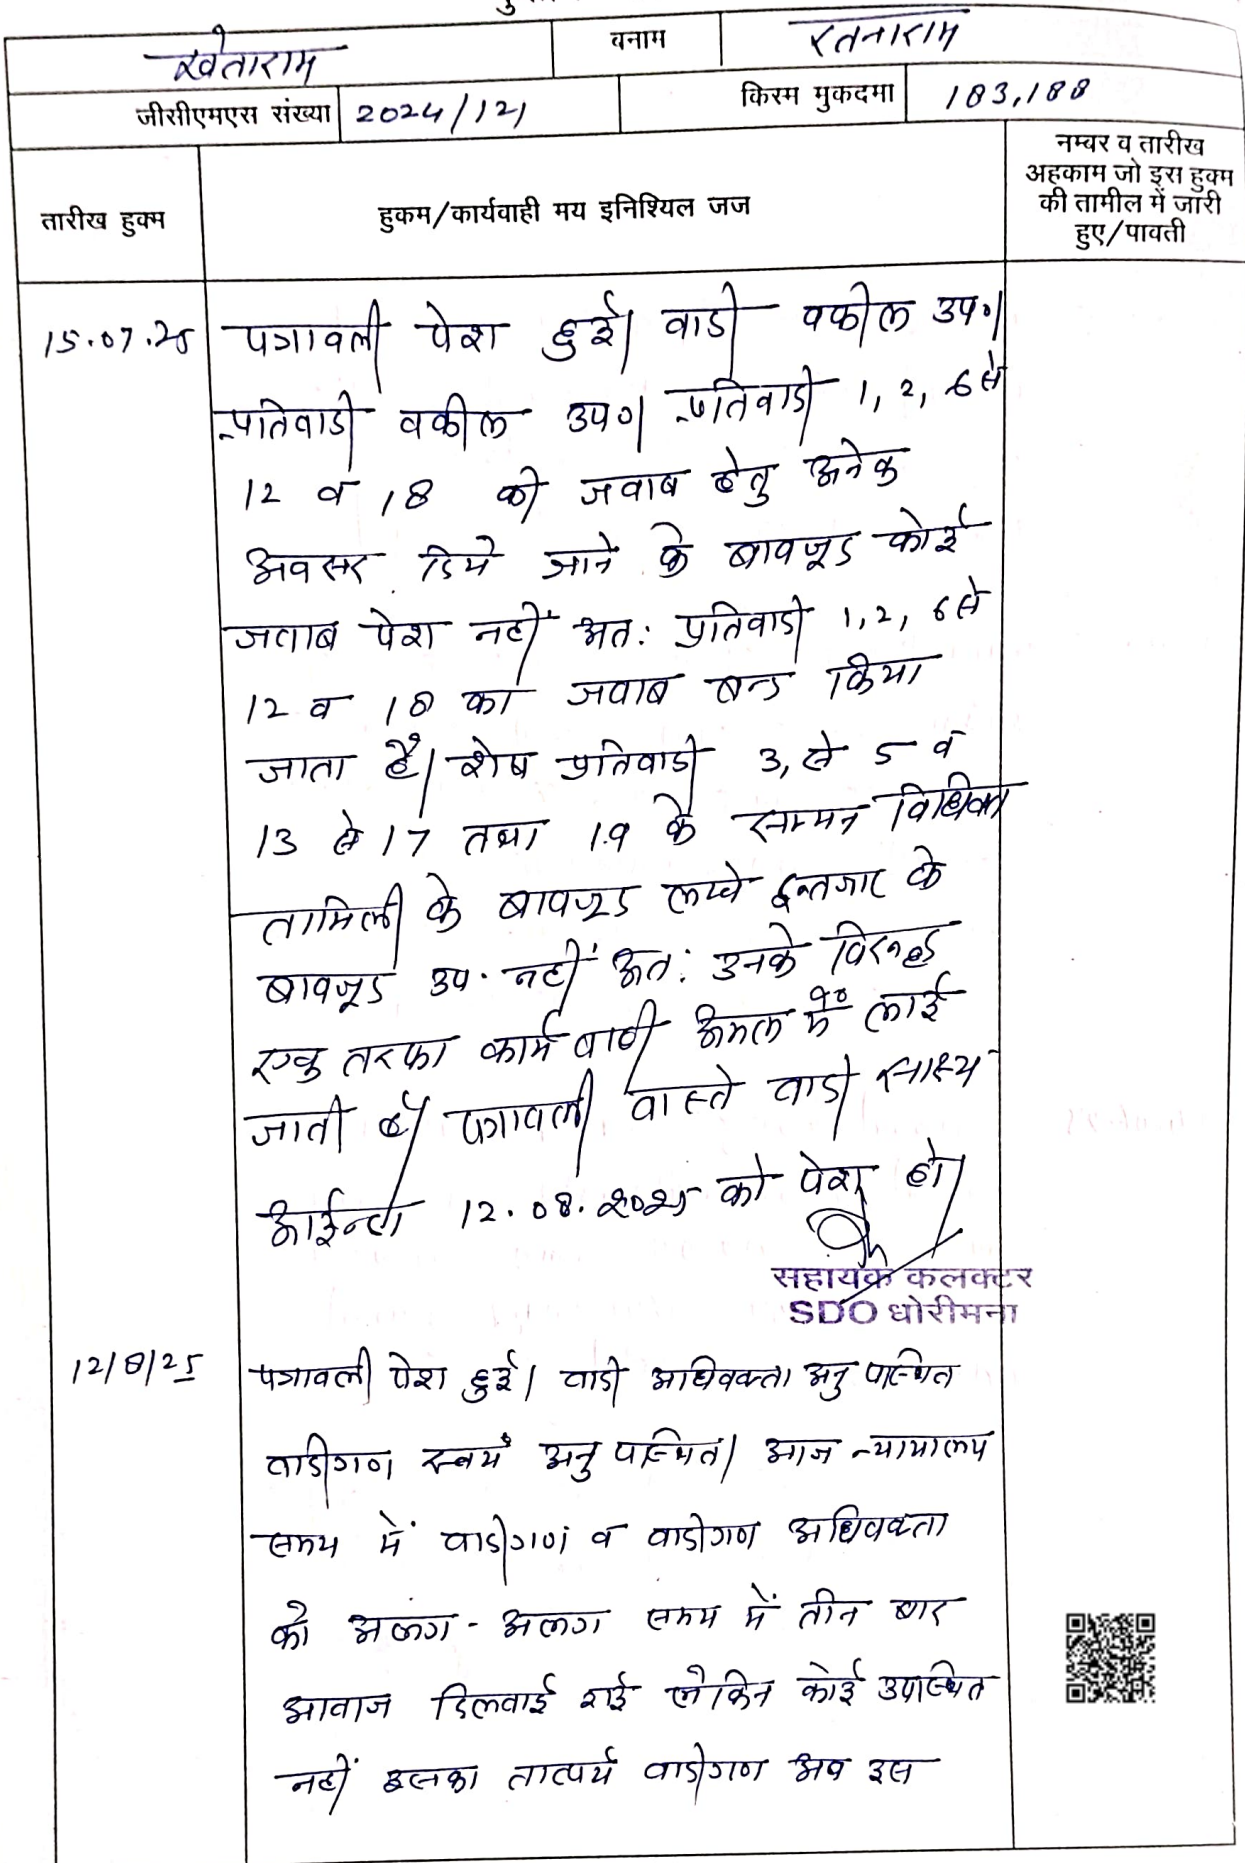 खेताराम वनाम रतनाराम
जीसीएमएस संख्या 2024/121 किस्म मुकदमा 183,188
तारीख हुक्म
हुकम/कार्यवाही मय इनिश्यिल जज
नम्बर व तारीख
अहकाम जो इस हुक्म
की तामील में जारी
हुए/पावती
15.07.25 पत्रावली पेश हुई। वादी वकील उप०।
प्रतिवादी वकील उप०। प्रतिवादी 1, 2, 6 से
12 व 18 को जवाब हेतु अनेक
अवसर दिये जाने के बावजूद कोई
जवाब पेश नहीं अत: प्रतिवादी 1, 2, 6 से
12 व 18 का जवाब बन्द किया
जाता है। शेष प्रतिवादी 3, से 5 व
13 से 17 तथा 19 के सम्मन विधिवत
तामिली के बावजूद लम्बे इन्तजार के
बावजूद उप. नहीं अत: उनके विरूद्ध
एक तरफा कार्यवाही अमल में लाई
जाती है। पत्रावली वास्ते वादी साक्ष्य
आईन्दा 12.08.2025 को पेश हो।
सहायक कलक्टर
SDO धोरीमना
12/8/25 पत्रावली पेश हुई। वादी अधिवक्ता अनुपस्थित
वादीगण स्वयं अनुपस्थित। आज न्यायालय
समय में वादीगण व वादीगण अधिवक्ता
को अलग - अलग समय में तीन बार
आवाज दिलवाई गई लेकिन कोई उपस्थित
नहीं इसका तात्पर्य वादीगण अब इस